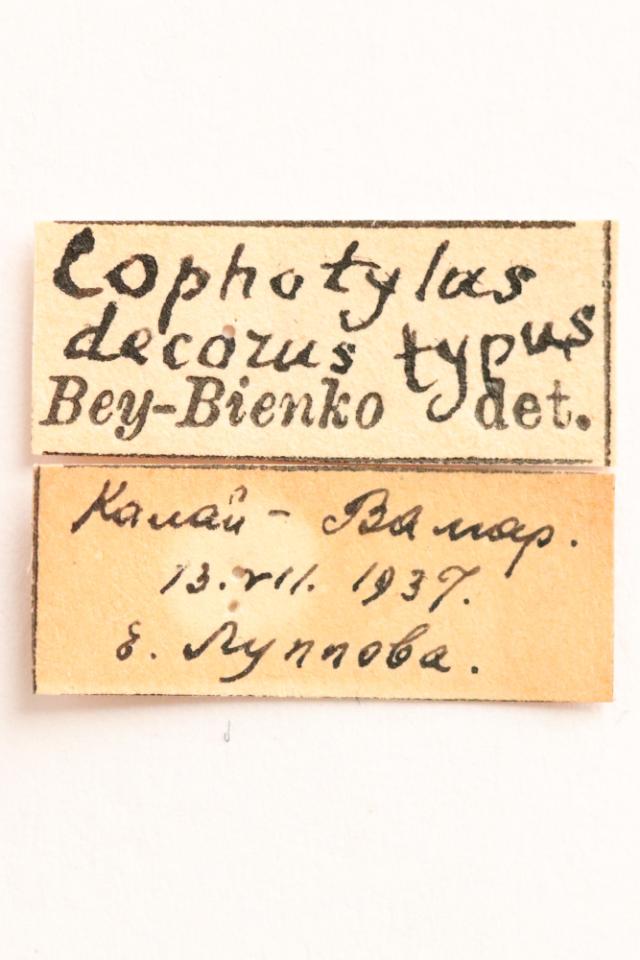 Cophotylus
decorus typus
Bey-Bienko det.
Калай-Вамар.
13.VII.1937.
Е. Луппова.